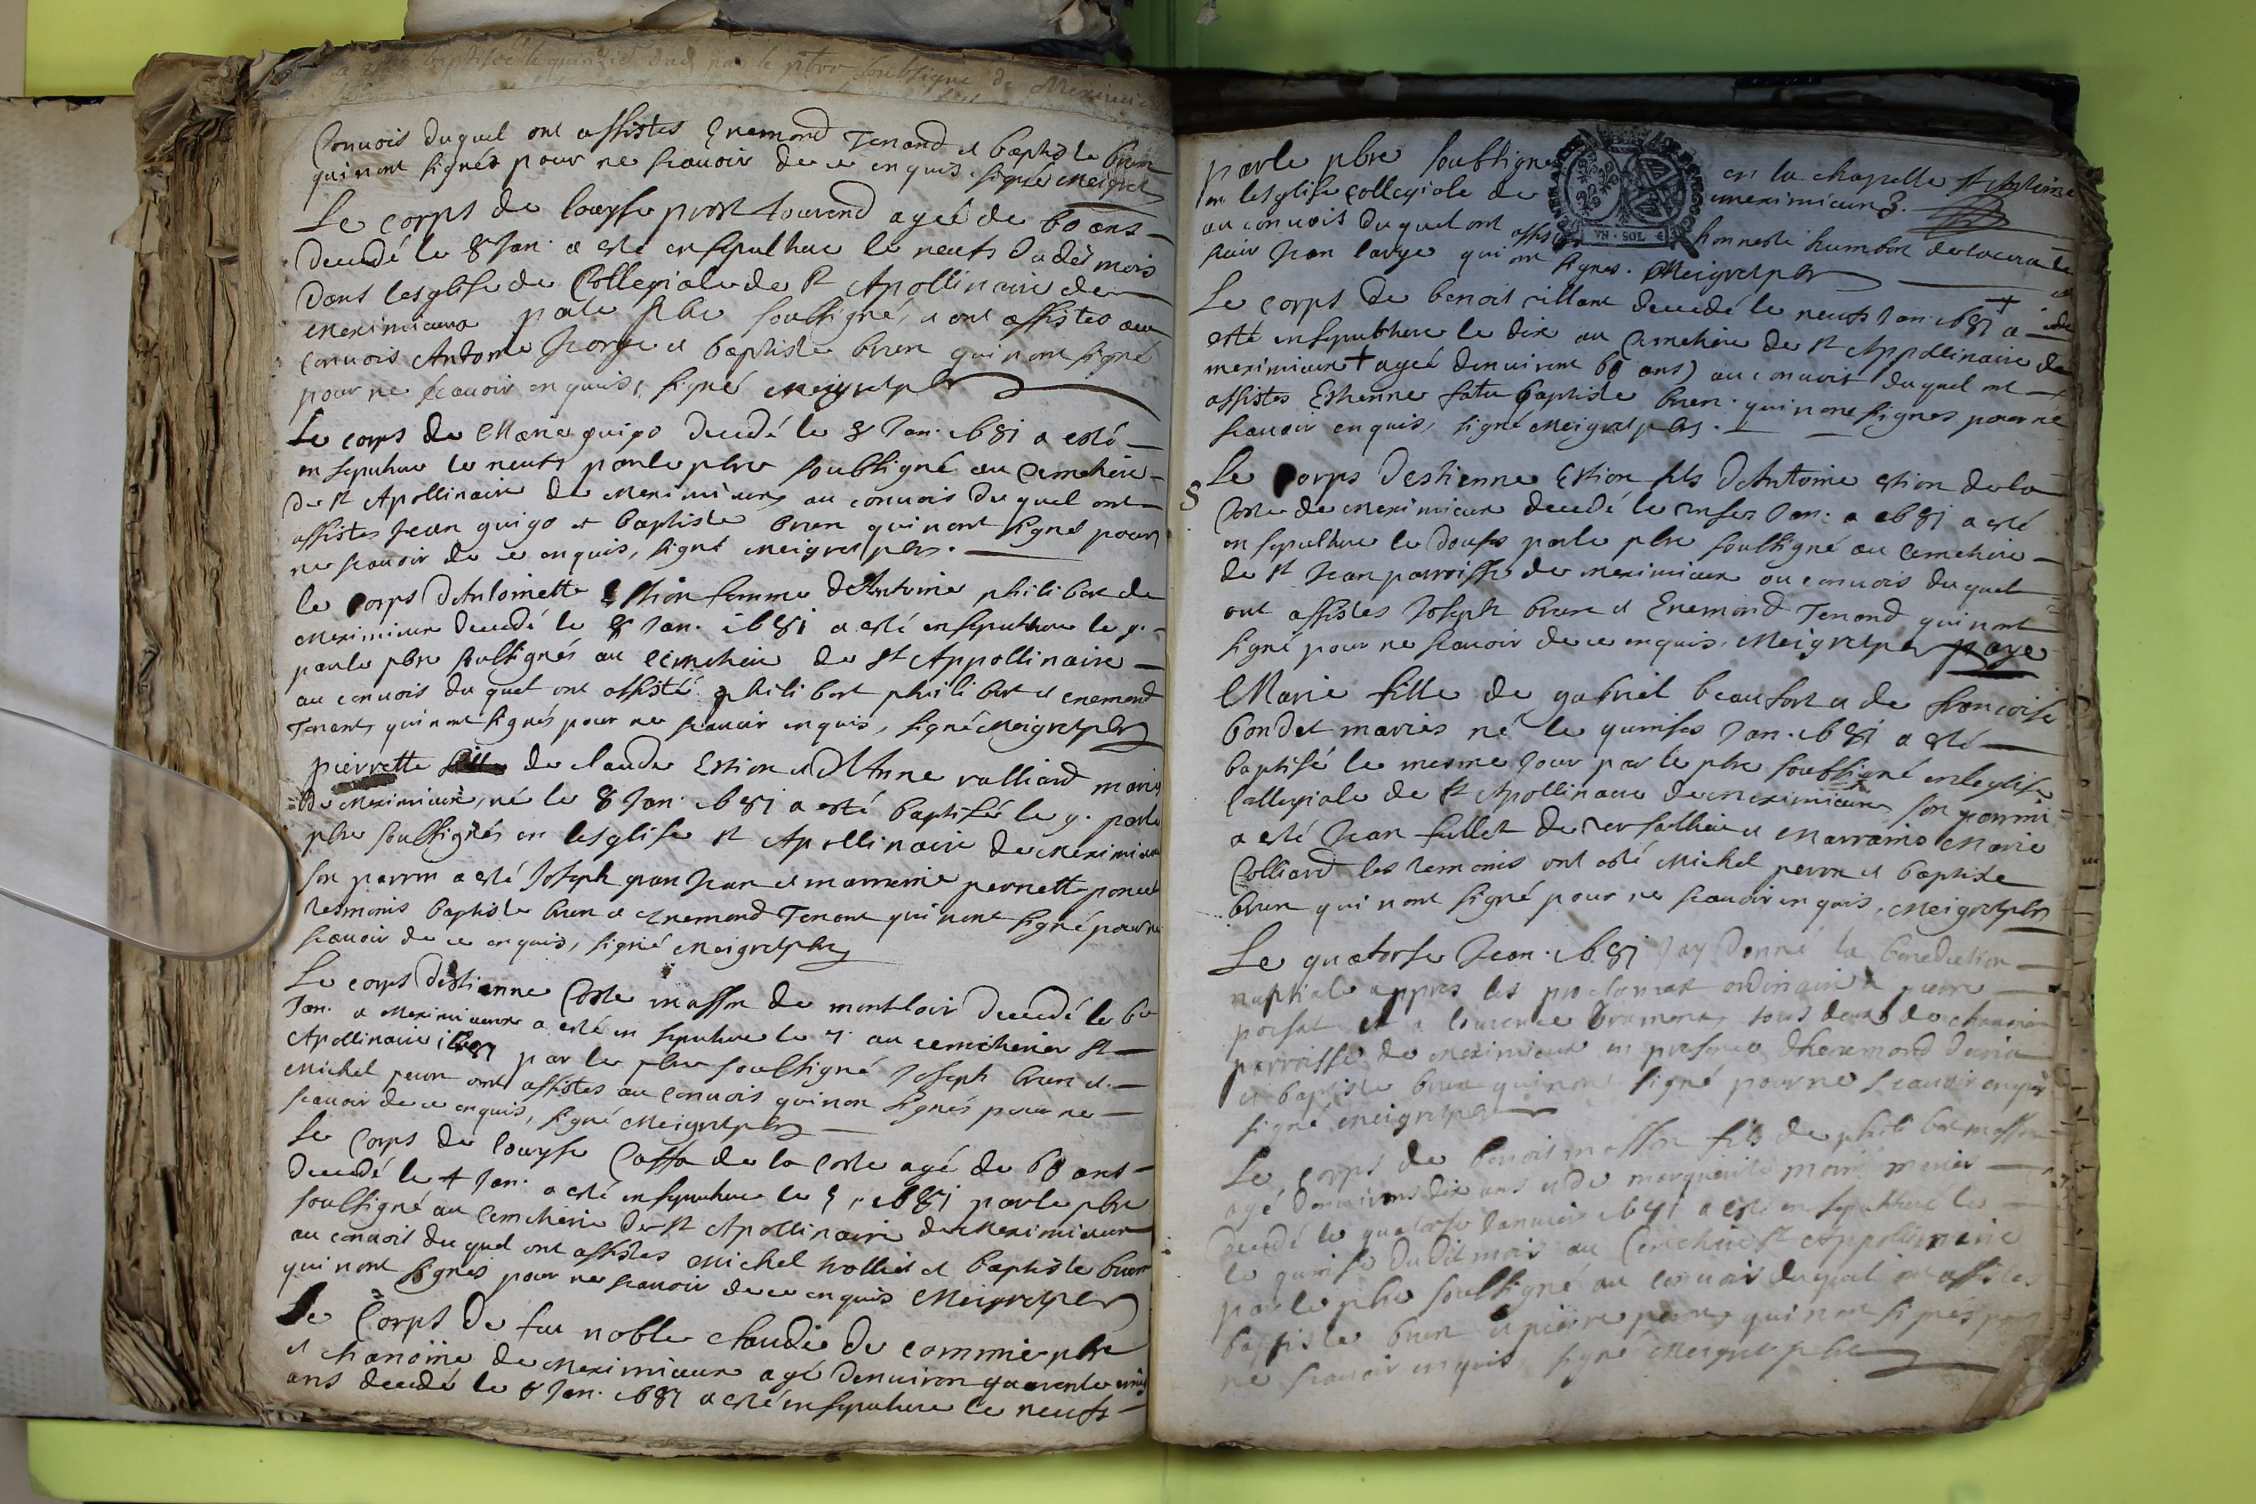 baptisé le quinzie dud par le pbre soubsigné de Meximieux
Convois duquel ont assistes Enemond Tenand et baptiste bren
qui nont signés pour ne scavoir de ce enquis. signé Meigret
Le corps de louyse prost tourend agée de 60 ans
decedé le 8 Jan. a esté ensepulture le neufs dudes mois
dans lesglise Collegiale de St Apollinaire de
Meximieux parle pbre soubsigné, et ont assistes au
convois Antome George et baptiste bren qui nont signé
pour ne scavoir enquis, signé Meigret pbr
Le corps de Marie guigo decedé le 8 Jan. 1681 a esté
en sepulture le neufs par le pbre soubsigné au cemetiere
de St Apollinaire de Meximieux au convois du quel ont
assistes Jean guigo et baptiste bren qui nont signé pour
ne scavoir de ce enquis, signé Meigret pbr.
le corps dAntoinette Estion femme dAntoine philibert de
Meximieux decedé le 8 Jan. 1681 a esté ensepulture le 9.
par le pbre soubsignés au cemetiere de St Appollinaire
au convois du quel ont assisté philibert philibert et enemond
Tenant, qui nont signés pour ne scavoir enquis, signé Meigret pbr
pierrette fille de claude Estion et dAnne valliard maries
de Meximieux, né le 8 Jan. 1681 a esté baptisée le 9. par le
pbre soubsignés en lesglise St Apollinaire de Meximieux
son parrin a esté Joseph gran Jean et marreine pernette poncet
tesmoins baptiste bren et Enemond Tenant qui nont signé pour ne
scavoir de ce enquis, signé Meigret pbr
Le corps dEstienne Coste masson de montloir decedé le 6e
Jan. a Meximieux a esté en sepulture le 7. au cemetierier St
Apollinaire 1681 par le pbre soubsigné Joseph bren et
Michel peron ont assistes au convois qui non signés pour ne
scavoir de ce enquis, signé Meigret pbr
Le Corps de louyse Cassa de la Coste agé de 60 ans
decedé le 4 Jan. a esté ensepulture le 5, 1681 parle pbre
soubsigné au cemetierie de St Apollinaire de Meximieux
au convois du quel ont assistes Michel vollies et baptiste bren
qui nont signés pour ne scavoir de ce enquis Meigret pbr
Le Corps de feu noble claude de commie pbre
et chanoine de Meximieux agé denviron quarente cinq
ans decedé le 8 Jan. 1681 a esté ensepulture le neufs
parle pbre soubsigne en la chapelle St Antoine
en lesglise Collegiale de meximieux.
au convois du quel ont assistes honneste humbert delacroix
sieur Jean large qui ont signes. Meigret pbr
Le corps de benoit villard decedé le neufs Jan. 1681 a
esté ensepulture le dix au cemetiere de St Appollinaire de
meximieux + ageé denviront 60 ans) au convois duquel ont
assistes Estienne fatu baptiste bren. qui nont signes pour ne
scavoir enquis, signé Meigret pbr.
Le corps dEstienne Estion fils dAntoine estion de la
Coste de Meximieux decedé le onses Jan. a 1681 a esté
en sepulture le douse parle pbre soubsigné au cemetiere
de St Jean parroisse de meximieux au convois duquel
ont assistes Joseph bren et Enemond Tenand qui nont
signé pour ne scavoir de ce enquis. Meigret pbr paye
Marie fille de gabriel beaufort et de francoise
bondet maries né le quinses Jan. 1681 a esté
baptisé le mesme Jour par le pbre soubsigné en leglise
Collegiale de St Apollinaire de Meximieux son parrin
a esté Jean fullet de versailleux et Marraine Marie
Colliard les temoins ont esté Michel peron et baptiste
bren qui nont signé pour ne scavoir enquis. Meigret pbr
Le quatorse Jean. 1681 Jay donné la benediction
nuptiale appres les proclamat ordinaire a pierre
et a laurence tous deux de
parroisse de Meximieux en presence dhenemond
et baptiste bren qui nont signé pour ne scavoir enquis
signé Meigret pbr
Le corps de benoit masson fils de philibert masson
agé denvirons dix ans et de marguerite maries
decedé le quatorse Janvier 1681 a esté ensepulturé le
le quinse dudit mois au Cemetiere St Appollinaire
par le pbre soubsigné au convois duquel ont assistes
baptiste bren et pierre peron qui nont signés pour
ne scavoir enquis signé Meigret pbre